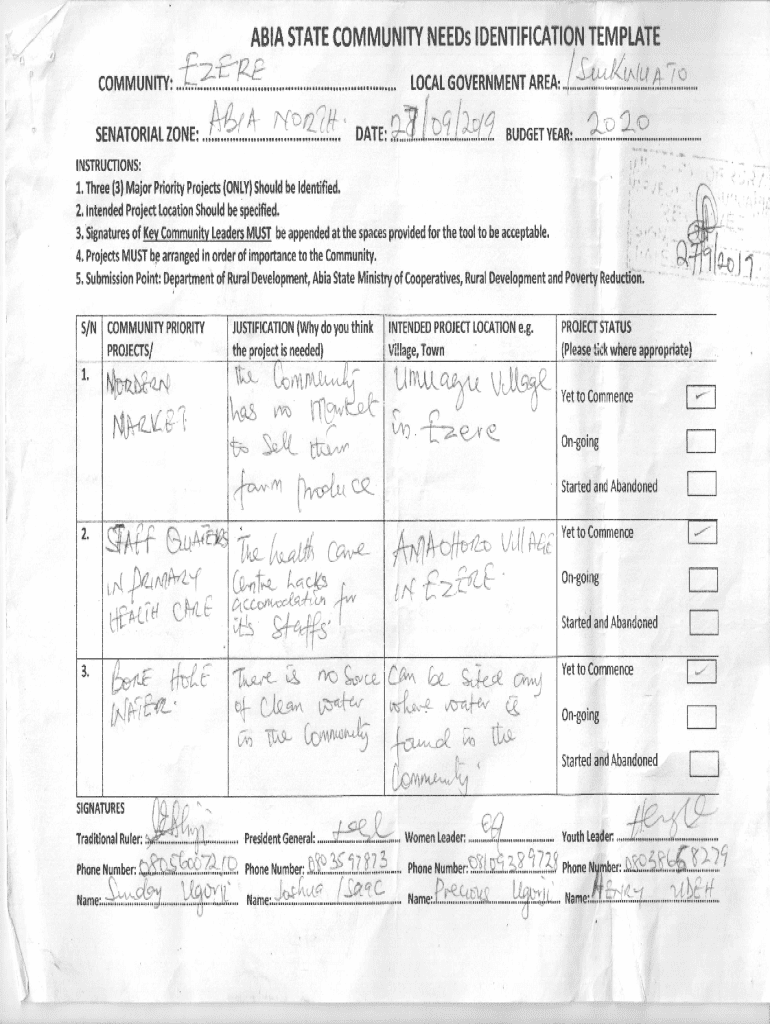 ABIA STATE COMMUNITY NEEDs IDENTIFICATION TEMPLATE
COMMUNITY: EZERE LOCAL GOVERNMENT AREA: Isuikwuato
SENATORIAL ZONE: ABIA NORTH. DATE: 27/09/2019 BUDGET YEAR: 2020
INSTRUCTIONS:
1. Three (3) Major Priority Projects (ONLY) Should be Identified.
2. Intended Project Location Should be specified.
3. Signatures of Key Community Leaders MUST be appended at the spaces provided for the tool to be acceptable.
4. Projects MUST be arranged in order of importance to the Community.
5. Submission Point: Department of Rural Development, Abia State Ministry of Cooperatives, Rural Development and Poverty Reduction.
27/9/2019
S/N COMMUNITY PRIORITY PROJECTS/
JUSTIFICATION (Why do you think the project is needed)
INTENDED PROJECT LOCATION e.g. Village, Town
PROJECT STATUS (Please tick where appropriate)
1.
MORDERN
MARKET
the Community
has no Market
to Sell their
farm produce
Umuagu Village
in Ezere
Yet to Commence
On-going
Started and Abandoned
2.
STAFF QUATERS
IN PRIMARY
HEALTH CARE
The health care
Centre Lacks
accomodation for
it's Staffs
AMAOHORO VILLAGE
IN EZERE.
Yet to Commence
On-going
Started and Abandoned
3.
BORE HOLE
WATER.
There is no Source
of Clean water
in the Community
Can be Sited any
where water is
found in the
Community
Yet to Commence
On-going
Started and Abandoned
SIGNATURES
Traditional Ruler: President General: Women Leader: Youth Leader:
Phone Number: 08056087210 Phone Number: 0803597873 Phone Number: 08109289728 Phone Number: 08038658279
Name: Sunday Ugorji Name: Joshua Isaac Name: Precious Ugorji Name: HENRY UDEH